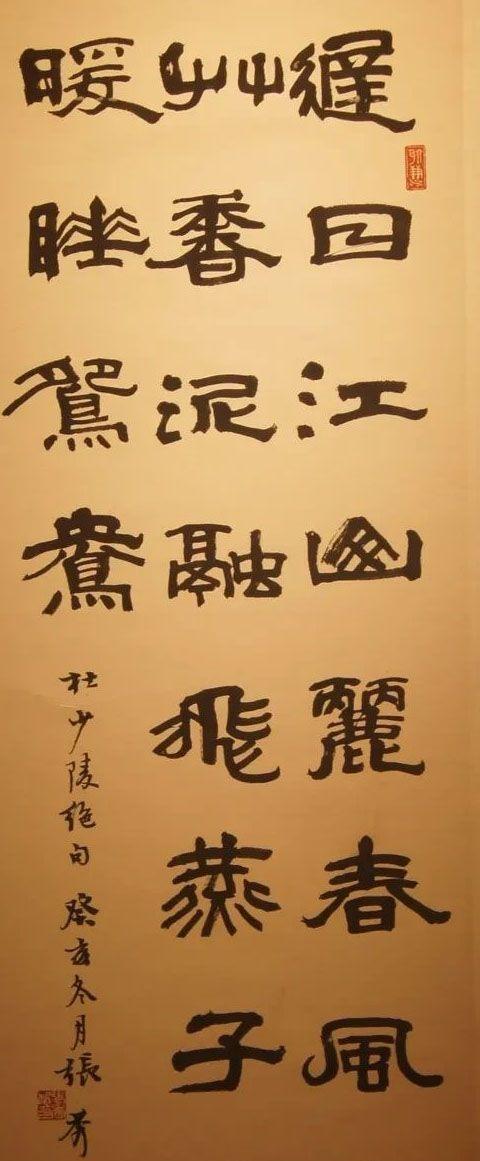 遲日江山麗春風
艸香泥融飛燕子
暖睡鴛鴦
杜少陵絕句 癸亥冬月 張